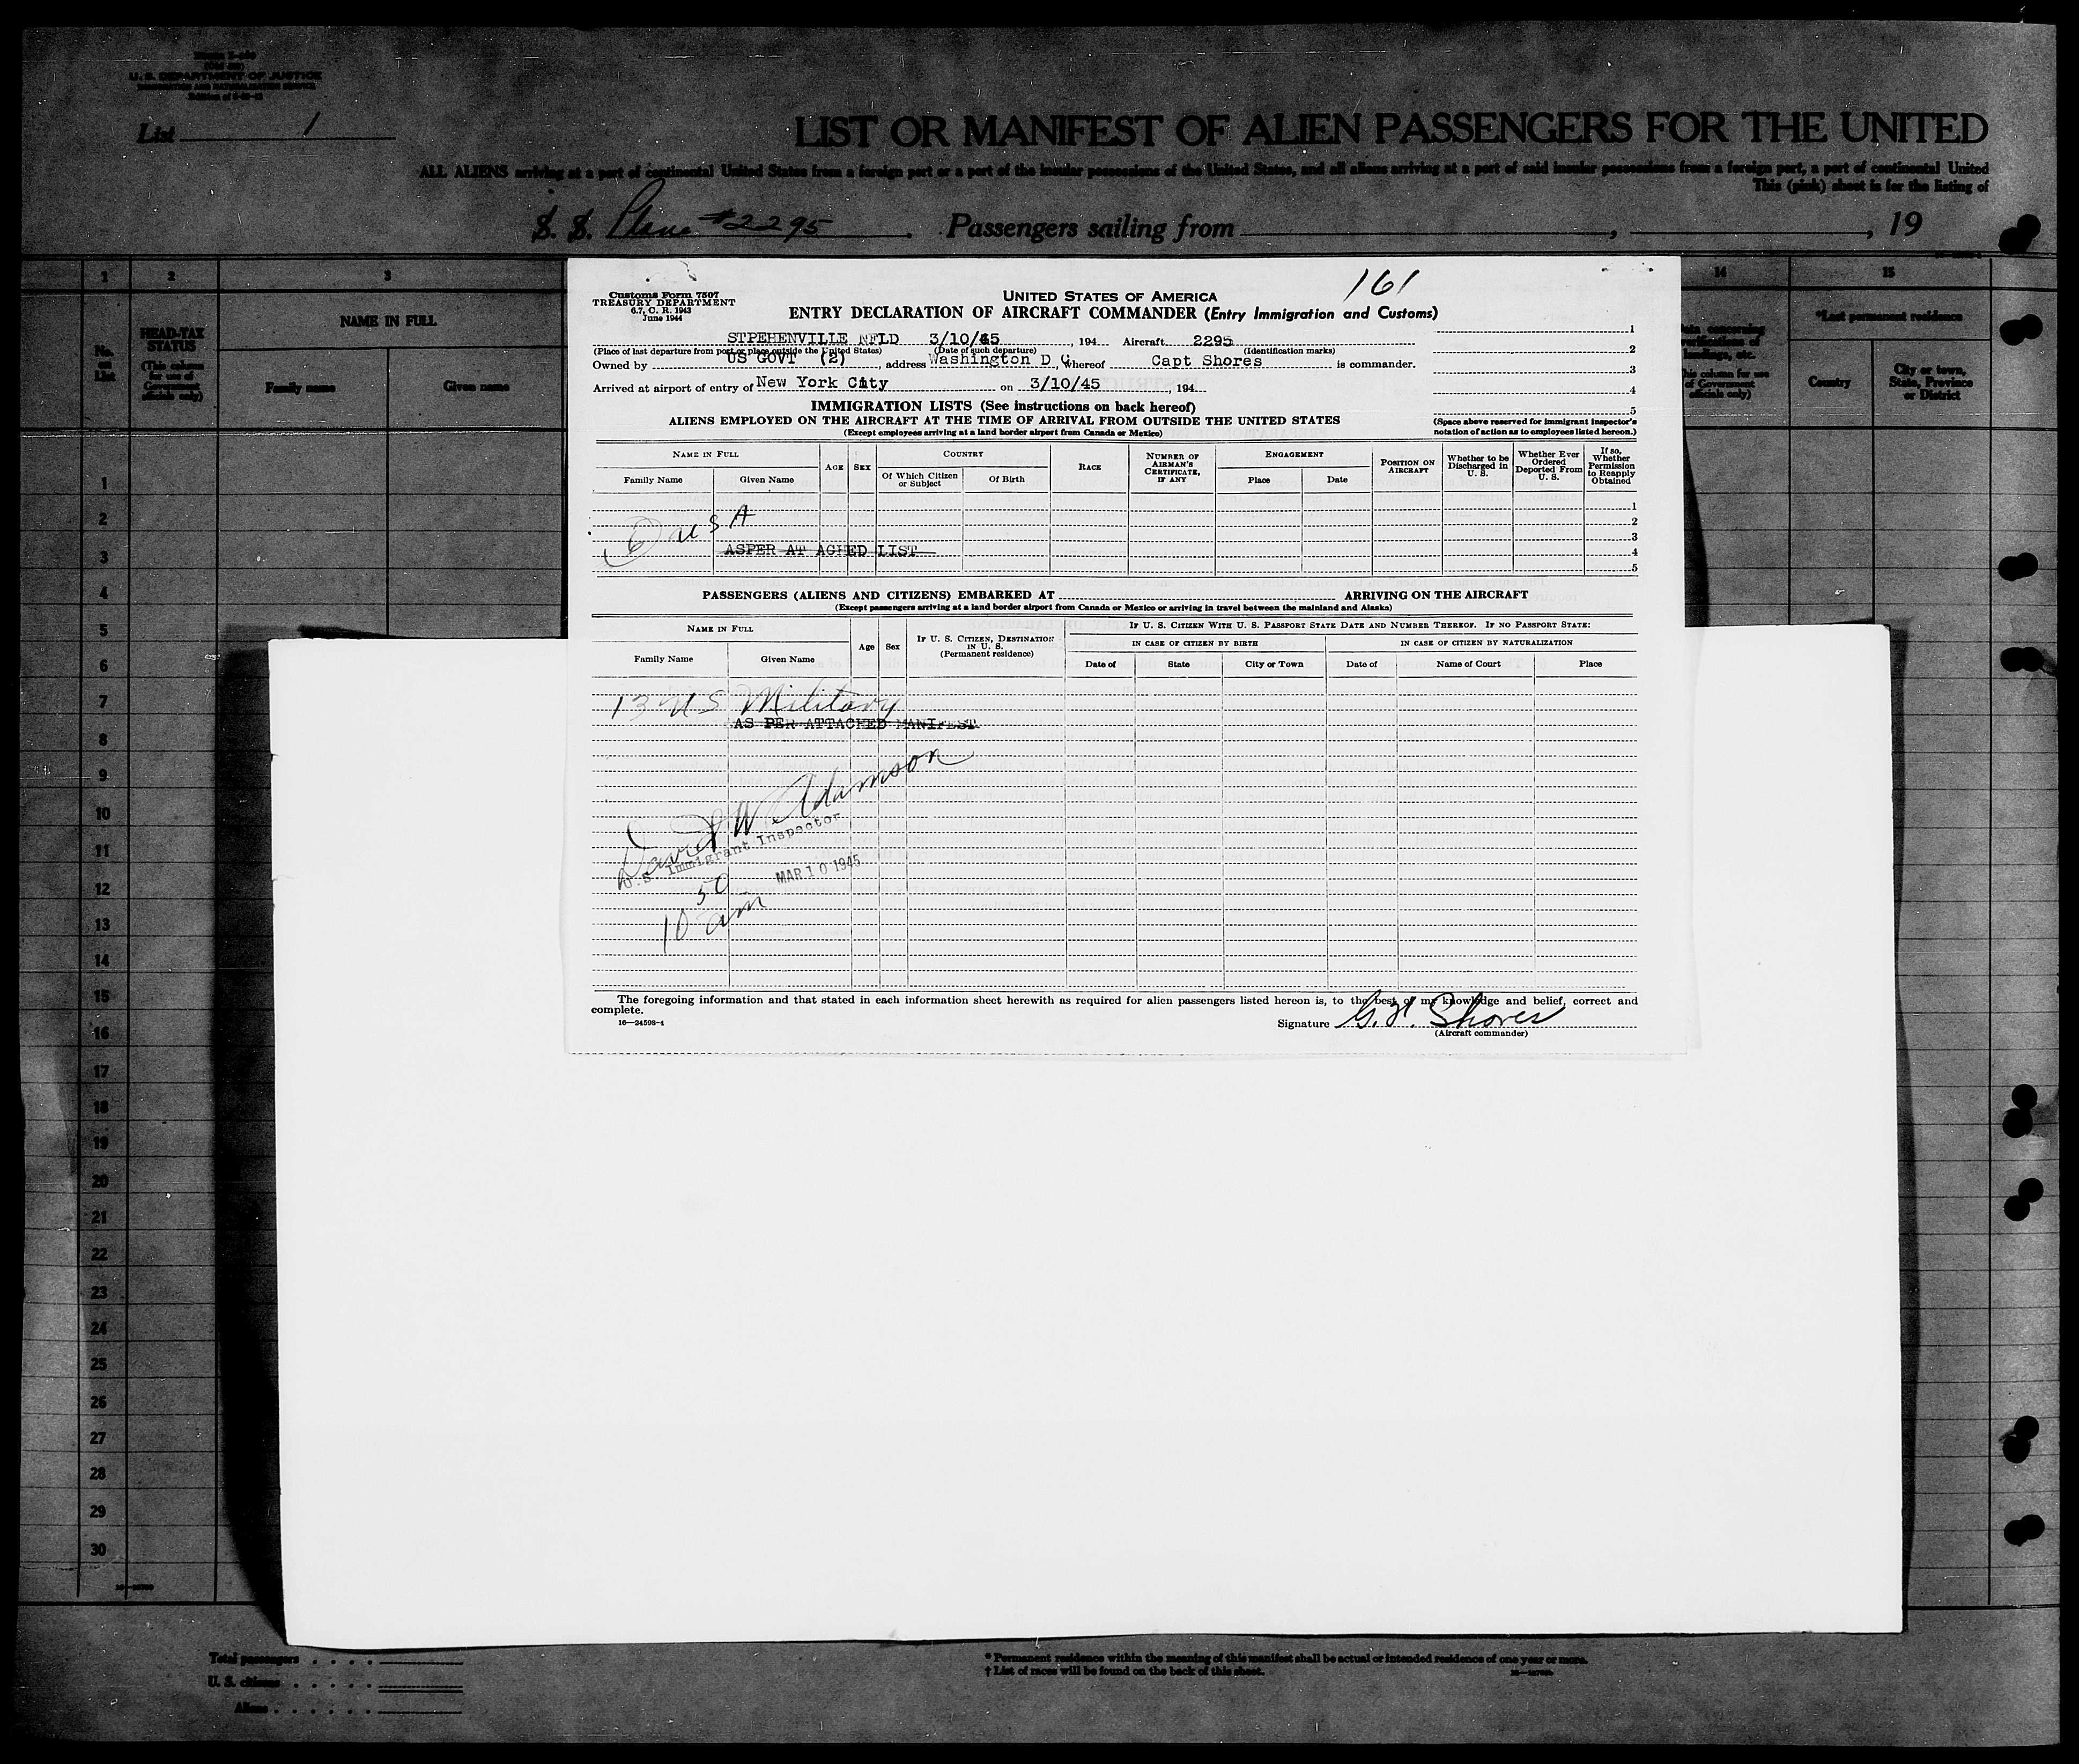 U. S. DEPARTMENT OF JUSTICE
IMMIGRATION AND NATURALIZATION SERVICE
List 1
LIST OR MANIFEST OF ALIEN PASSENGERS FOR THE UNITED
ALL ALIENS arriving at a port of continental United States from a foreign port or a port of the insular possessions of the United States, and all aliens arriving at a port of said insular possessions from a foreign port, a port of continental United
This (pink) sheet is for the listing of
S. S. Plane #2295 . Passengers sailing from , , 19
1 2 3 14 15
No. on List
HEAD-TAX STATUS
(This column for use of Government officials only)
NAME IN FULL
Family name Given name
*Last permanent residence
Country
City or town, State, Province or District
161
Customs Form 7507
TREASURY DEPARTMENT
6.7, C. R. 1943
June 1944
UNITED STATES OF AMERICA
ENTRY DECLARATION OF AIRCRAFT COMMANDER (Entry Immigration and Customs)
STPEHENVILLE NFLD 3/10/45, 194 Aircraft 2295
(Place of last departure from port or place outside the United States) (Date of such departure) (Identification marks)
Owned by US GOVT (2), address Washington D C, whereof Capt Shores is commander.
Arrived at airport of entry of New York City on 3/10/45, 194
1
2
3
4
5
(Space above reserved for immigrant inspector's notation of action as to employees listed hereon.)
IMMIGRATION LISTS (See instructions on back hereof)
ALIENS EMPLOYED ON THE AIRCRAFT AT THE TIME OF ARRIVAL FROM OUTSIDE THE UNITED STATES
(Except employees arriving at a land border airport from Canada or Mexico)
NAME IN FULL
Family Name Given Name
AGE SEX
COUNTRY
Of Which Citizen or Subject Of Birth
RACE
NUMBER OF AIRMAN'S CERTIFICATE, IF ANY
ENGAGEMENT
Place Date
POSITION ON AIRCRAFT
Whether to be Discharged in U. S.
Whether Ever Ordered Deported From U. S.
If so, Whether Permission to Reapply Obtained
1
2
3
4
5
6 USA
ASPER AT ACHED LIST
PASSENGERS (ALIENS AND CITIZENS) EMBARKED AT ARRIVING ON THE AIRCRAFT
(Except passengers arriving at a land border airport from Canada or Mexico or arriving in travel between the mainland and Alaska)
NAME IN FULL
Family Name Given Name
Age Sex
IF U. S. CITIZEN, DESTINATION IN U. S.
(Permanent residence)
IF U. S. CITIZEN WITH U. S. PASSPORT STATE DATE AND NUMBER THEREOF. IF NO PASSPORT STATE:
IN CASE OF CITIZEN BY BIRTH IN CASE OF CITIZEN BY NATURALIZATION
Date of State City or Town Date of Name of Court Place
13 US Military
AS PER ATTACHED MANIFEST
David W Adamson
U.S. Immigrant Inspector
MAR 10 1945
10 50 am
The foregoing information and that stated in each information sheet herewith as required for alien passengers listed hereon is, to the best of my knowledge and belief, correct and
complete.
16—24598-1
Signature G. H. Shores
(Aircraft commander)
1
2
3
4
5
6
7
8
9
10
11
12
13
14
15
16
17
18
19
20
21
22
23
24
25
26
27
28
29
30
Total passengers
U. S. citizens
Aliens
* Permanent residence within the meaning of this manifest shall be actual or intended residence of one year or more.
† List of races will be found on the back of this sheet.